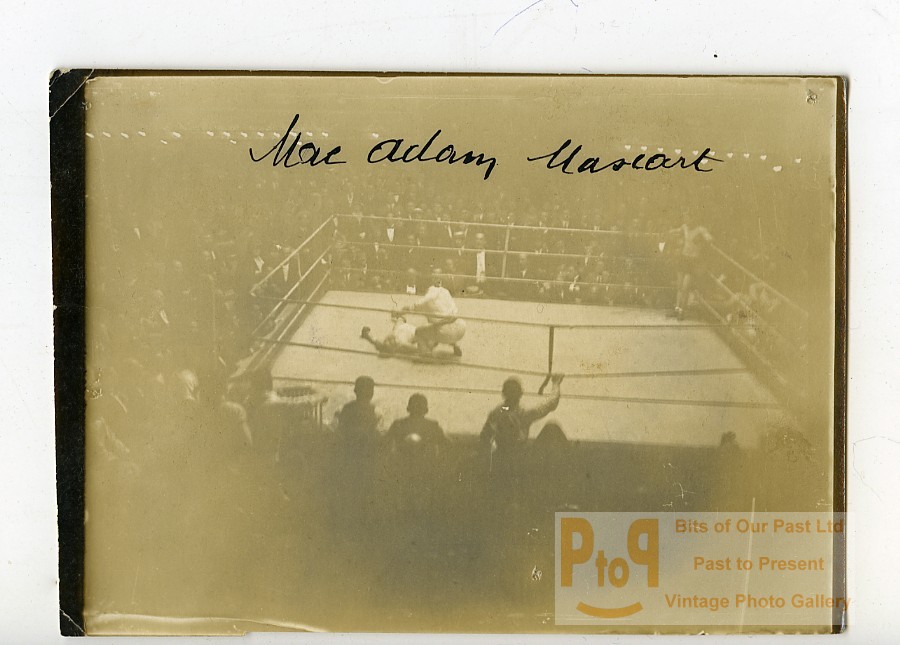 Mac Adam, Mascart
PtoP
Bits of Our Past Ltd
Past to Present
Vintage Photo Gallery